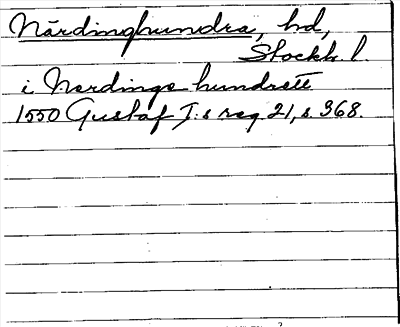 Närdinghundra, hd,
Stockh. l.
i Nerdinge hundrett
1550 Gustaf I:s reg 21, s. 368.